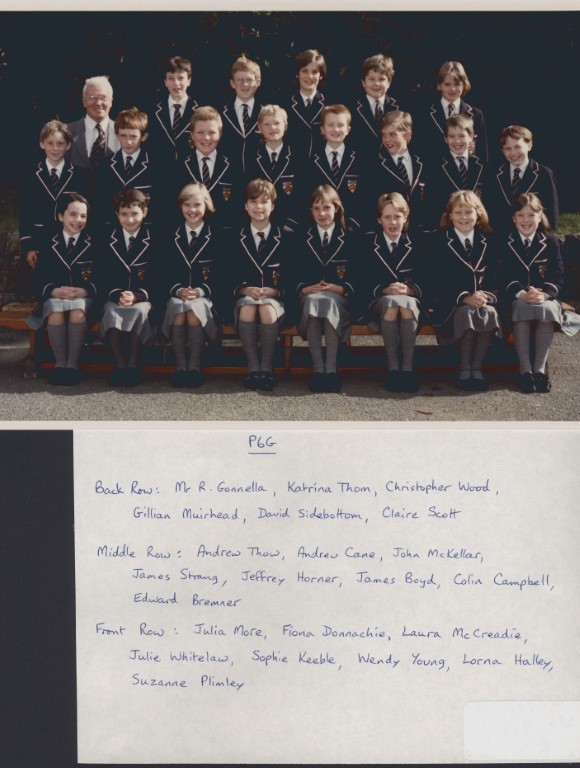 P6G
Back Row: Mr R. Gonnella, Katrina Thom, Christopher Wood,
Gillian Muirhead, David Sidebottom, Claire Scott
Middle Row: Andrew Thow, Andrew Cane, John McKellar,
James Strang, Jeffrey Horner, James Boyd, Colin Campbell,
Edward Bremner
Front Row: Julia More, Fiona Donnachie, Laura McCreadie,
Julie Whitelaw, Sophie Keeble, Wendy Young, Lorna Halley,
Suzanne Plimley